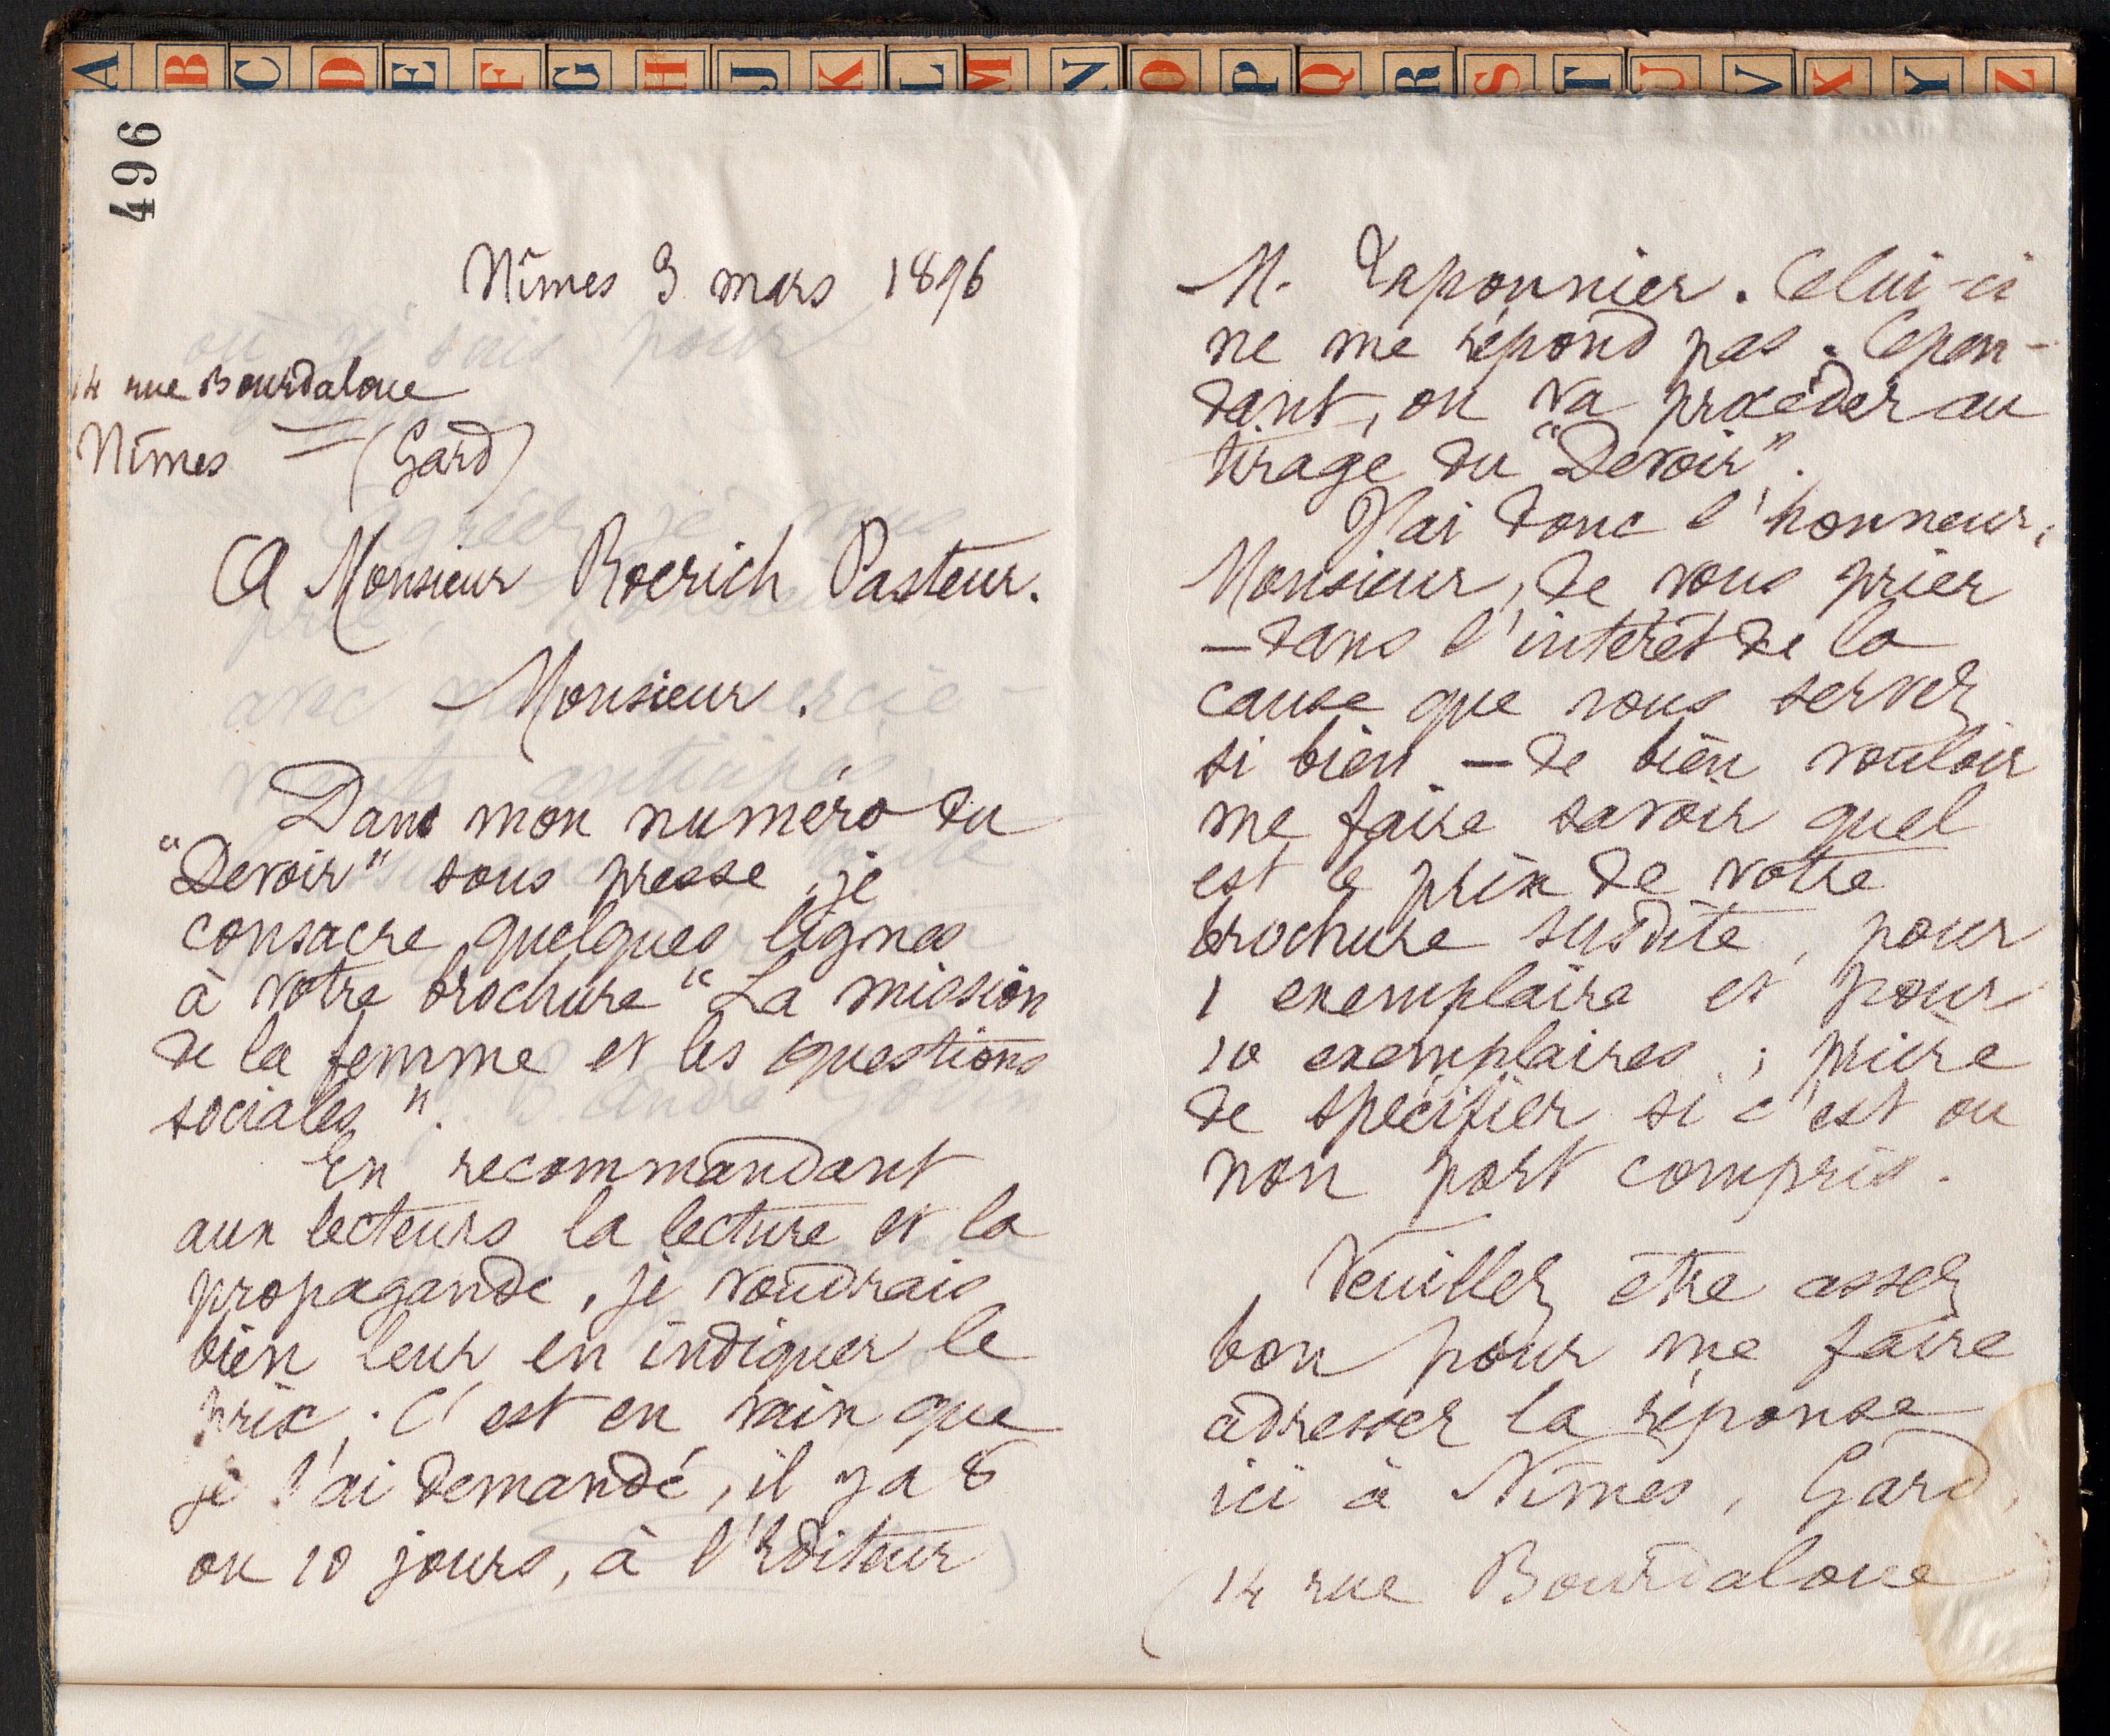 A B C D E F G H J K L M N O P Q R S T U V X Y Z
496
Nîmes 3 mars 1896
14 rue Bourdaloue
Nîmes = (Gard)
A Monsieur Roerich Pasteur.
Monsieur.
Dans mon numéro du
"Devoir" sous presse, je
consacre quelques lignes
à votre brochure "La mission
de la femme et les questions
sociales".
En recommandant
aux lecteurs la lecture et la
propagande, je voudrais
bien leur en indiquer le
prix. C'est en vain que
je l'ai demandé, il y a 8
ou 10 jours, à l'Editeur
M. Laponnier. Celui-ci
ne me répond pas. Cepen-
dant, on va procéder au
tirage du "Devoir".
J'ai donc l'honneur,
Monsieur, de vous prier
—dans l'intérêt de la
cause que vous servez
si bien — de bien vouloir
me faire savoir quel
est le prix de votre
brochure susdite, pour
1 exemplaire et pour
10 exemplaires ; prière
de spécifier si c'est ou
non port compris.
Veuillez être assez
bon pour me faire
adresser la réponse
ici à Nîmes, Gard,
14 rue Bourdaloue